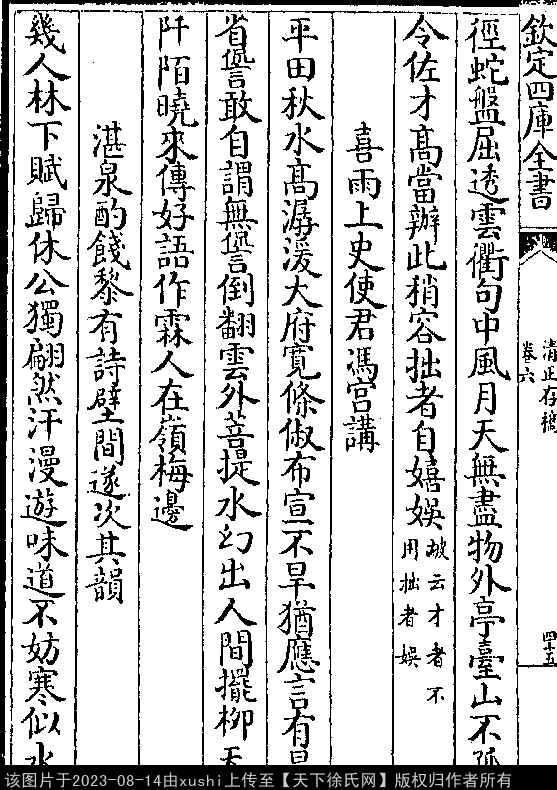 欽定四庫全書
清正存稿
卷六
四十五
徑蛇盤屈透雲衢句中風月天無盡物外亭臺山不孤
令佐才髙當辦此稍容拙者自嬉娛坡云才者不
用拙者娛
喜雨上史使君馮宫講
平田秋水髙潺湲大府寛條俶布宣一不旱猶應言有旱
省諐敢自謂無諐倒翻雲外菩提水幻出人間擺柳天
阡陌曉來傳好語作霖人在嶺梅邊
湛泉酌餞黎有詩壁間遂次其韻
幾人林下賦歸休公獨翩然汗漫遊味道不妨寒似水
该图片于2023-08-14由xushi上传至【天下徐氏网】版权归作者所有